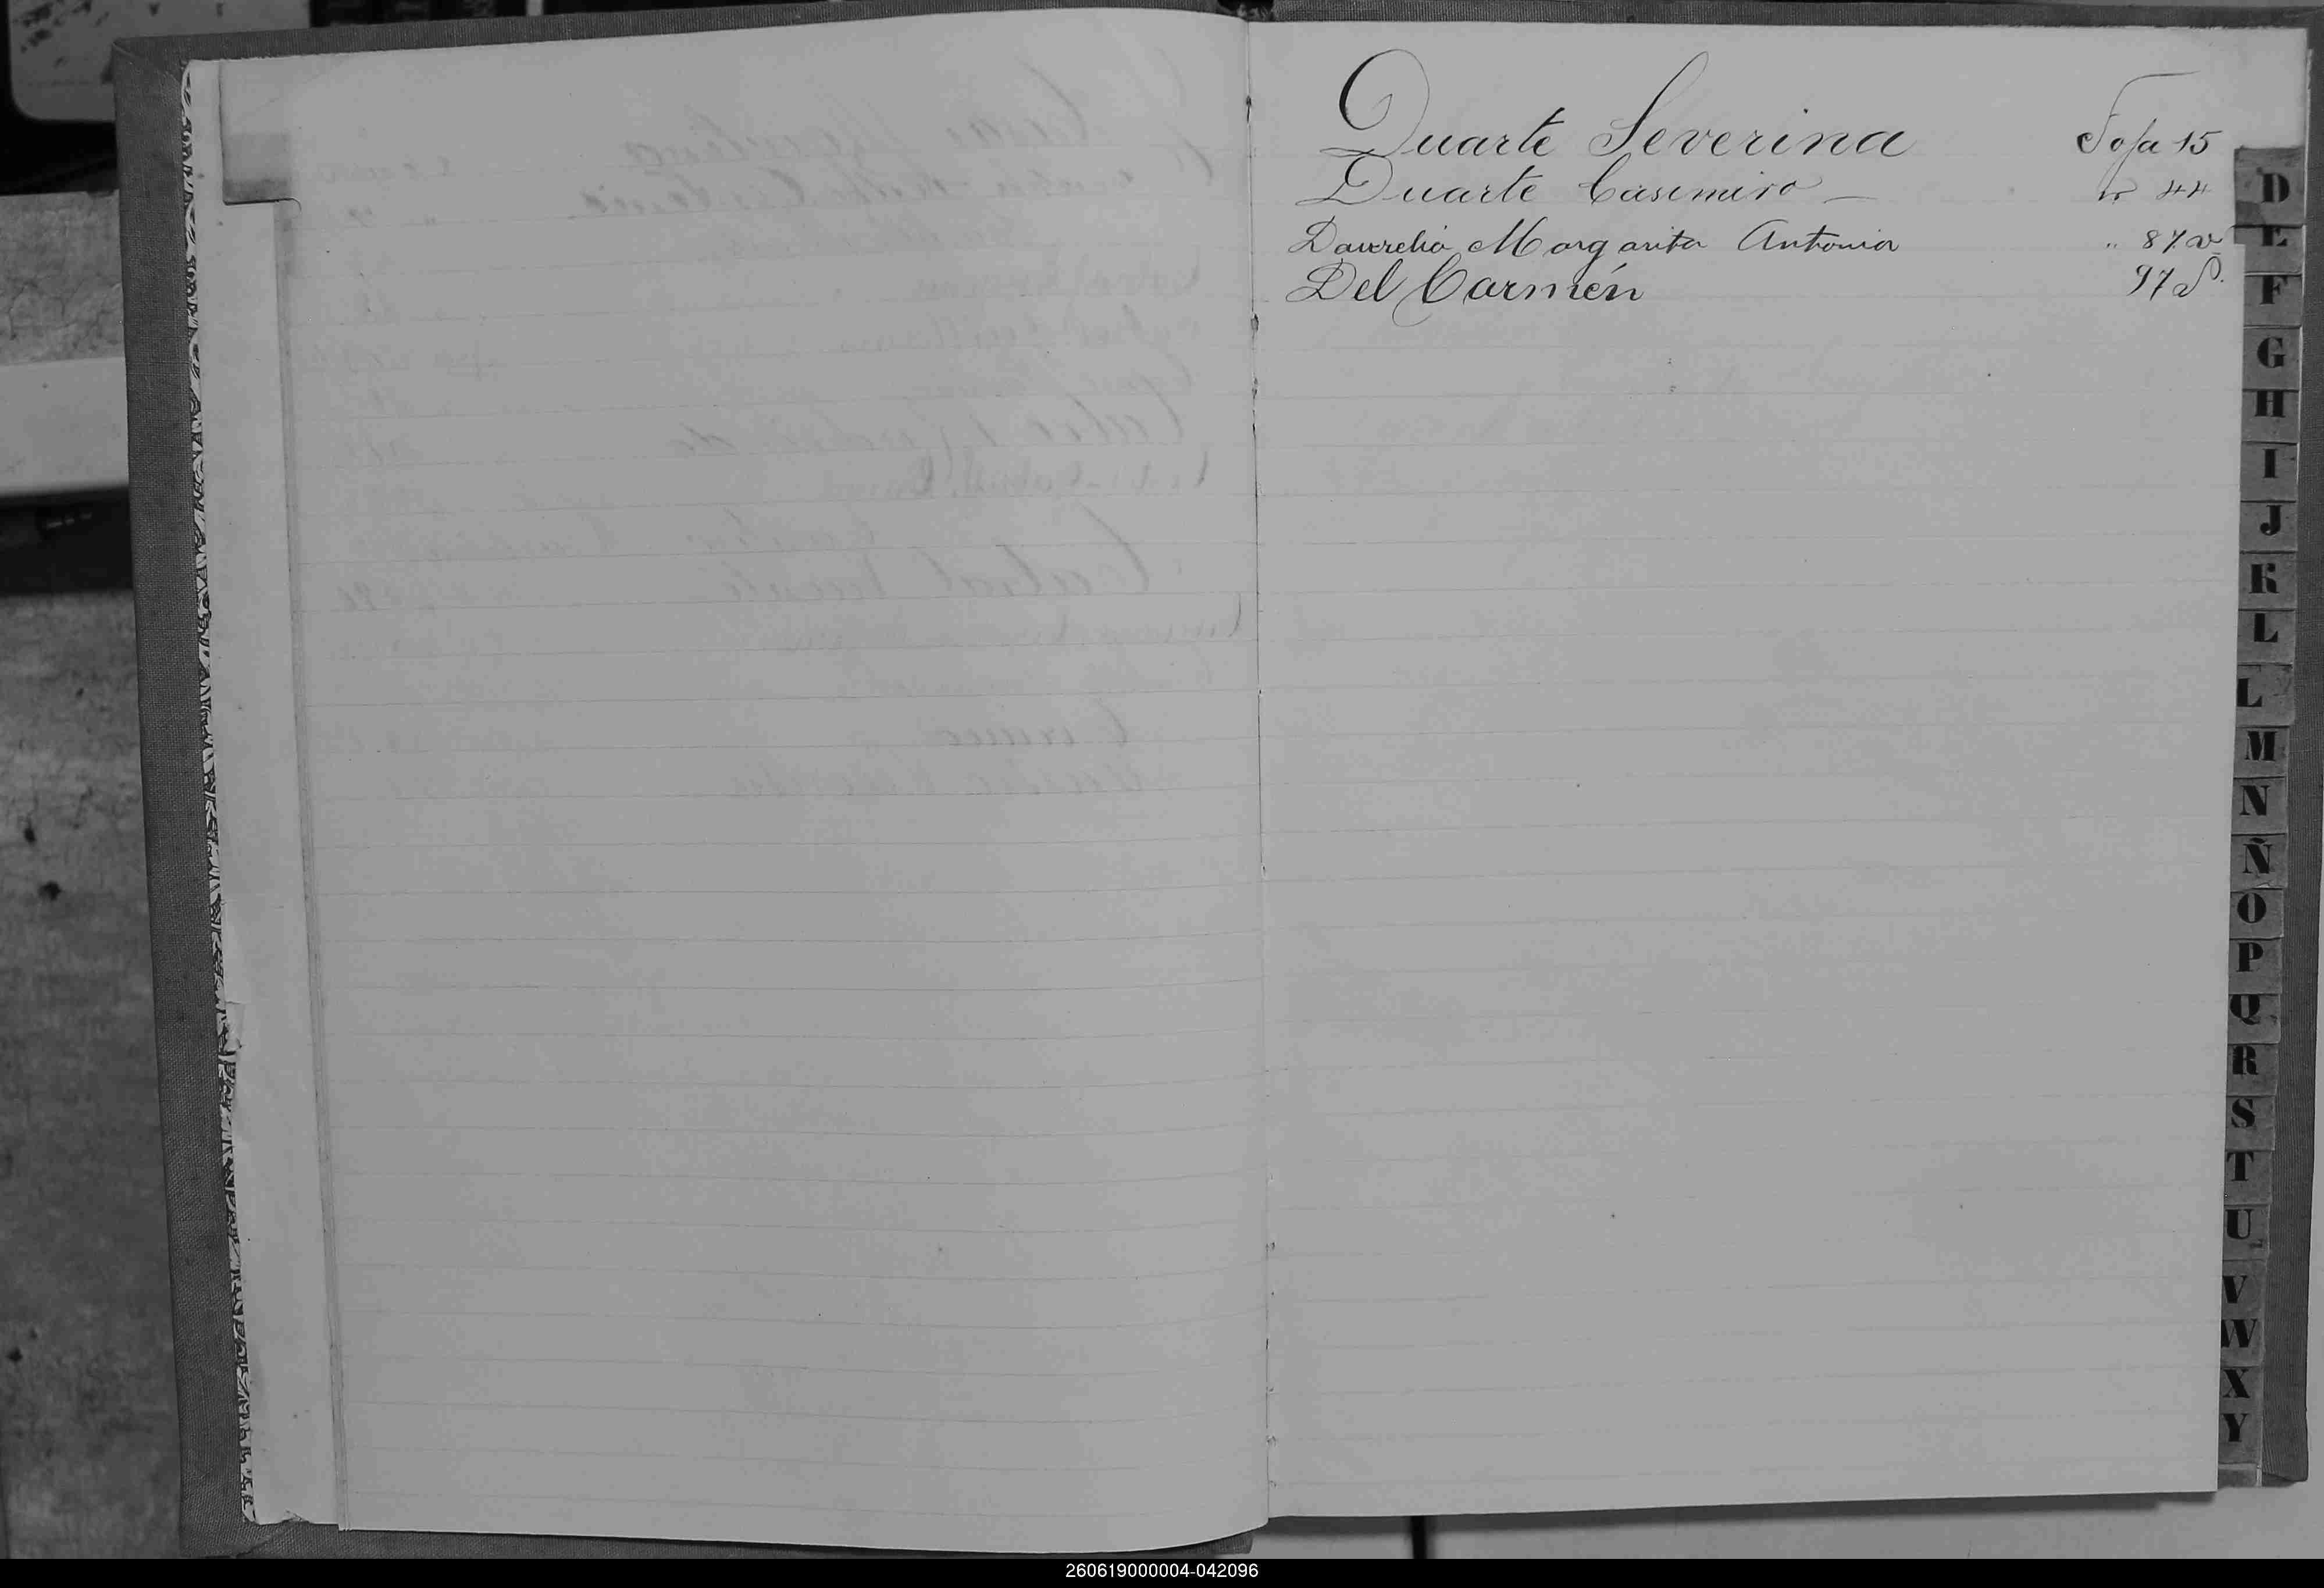 Duarte Severina Foja 15
Duarte Casimiro — " 44
Margarita Antonia " 87 v
Del Carmén 97
D
E
F
G
H
I
J
K
L
L
M
N
Ñ
O
P
Q
R
S
T
U
V
W
X
Y
260619000004-042096